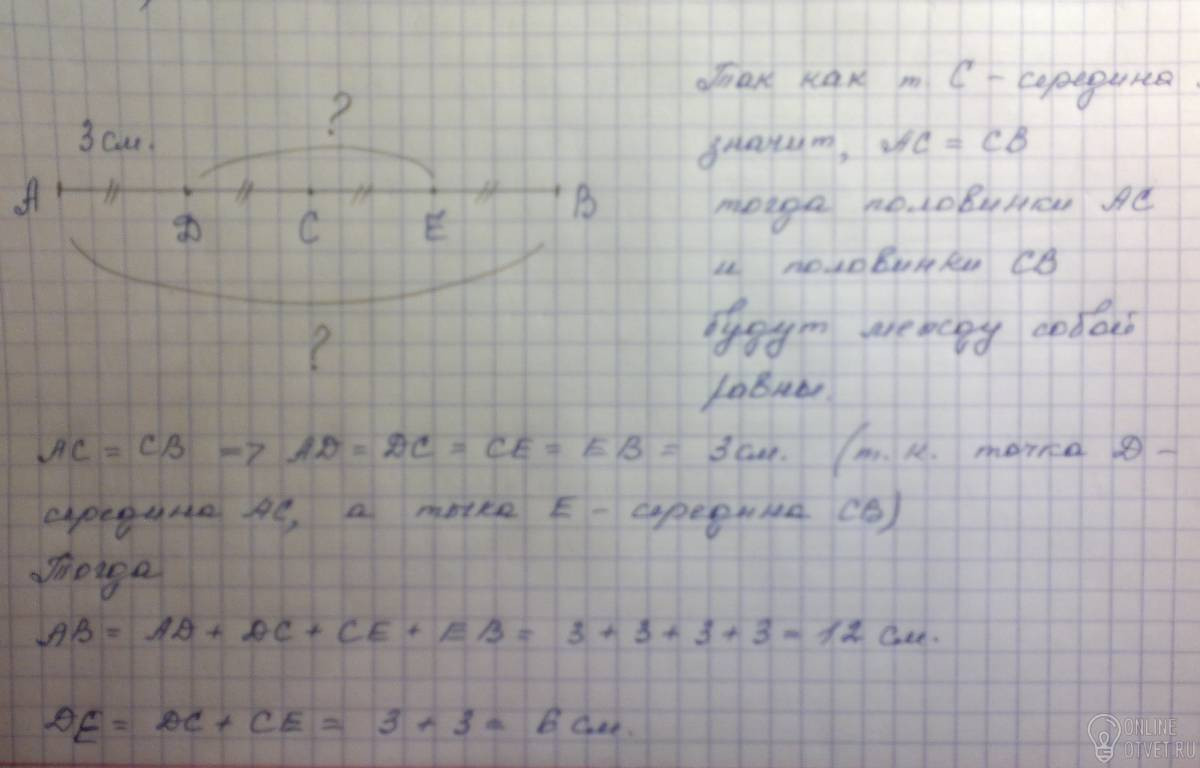 ?
3 см.
A D C E B
?
Так как т. C – середина
значит, AC = CB
тогда половинки AC
и половинки CB
будут между собой
равны.
AC = CB => AD = DC = CE = EB = 3 см. (т. к. точка D –
середина AC, а точка E – середина CB)
Тогда
AB = AD + DC + CE + EB = 3 + 3 + 3 + 3 = 12 см.
DE = DC + CE = 3 + 3 = 6 см.
ONLINE
OTVET.RU